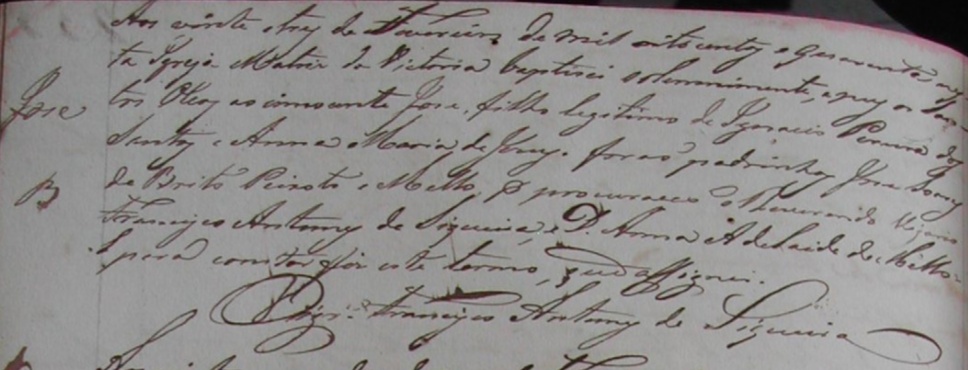 Aos vinte e trez de Fevereiro de mil oito centos e quarenta
ta Igreja Matriz da Victoria baptisei solemnemente, e puz os San
Jose
tos Oleos ao innocente Jose, filho legitimo de Ignacio Pereira dos
Santos e Anna Maria de Jesus. forão padrinhos Jose
B
de Brito Peixoto e Mello, p. procuração o Reverendo Vigario
Francisco Antonio de Siqueira, e D. Anna Adelaide de Mello.
E para constar fiz este termo, que assignei.
Vigr.º Francisco Antonio de Siqueira